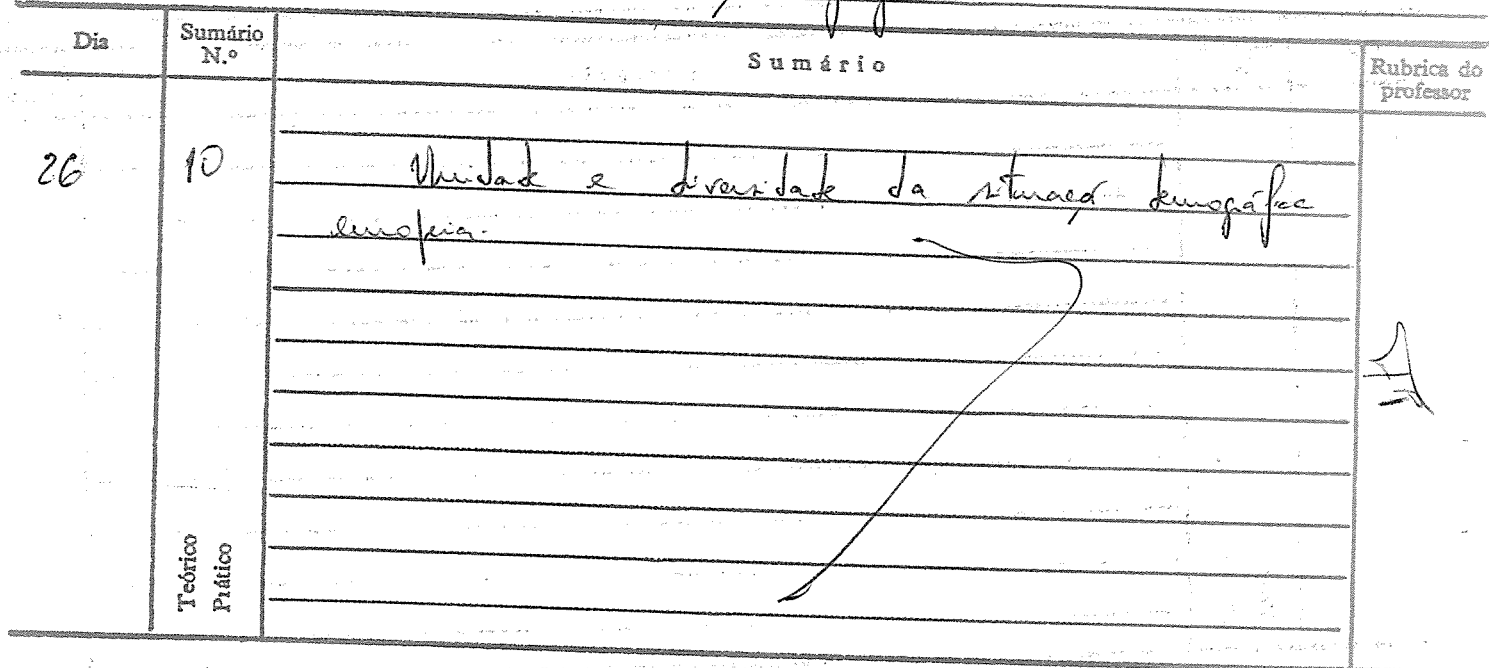 Dia
Sumário
N.º
Sumário
Rubrica do
professor
26
10
Unidade e diversidade da situação demográfica
europeia.
Teórico
Prático